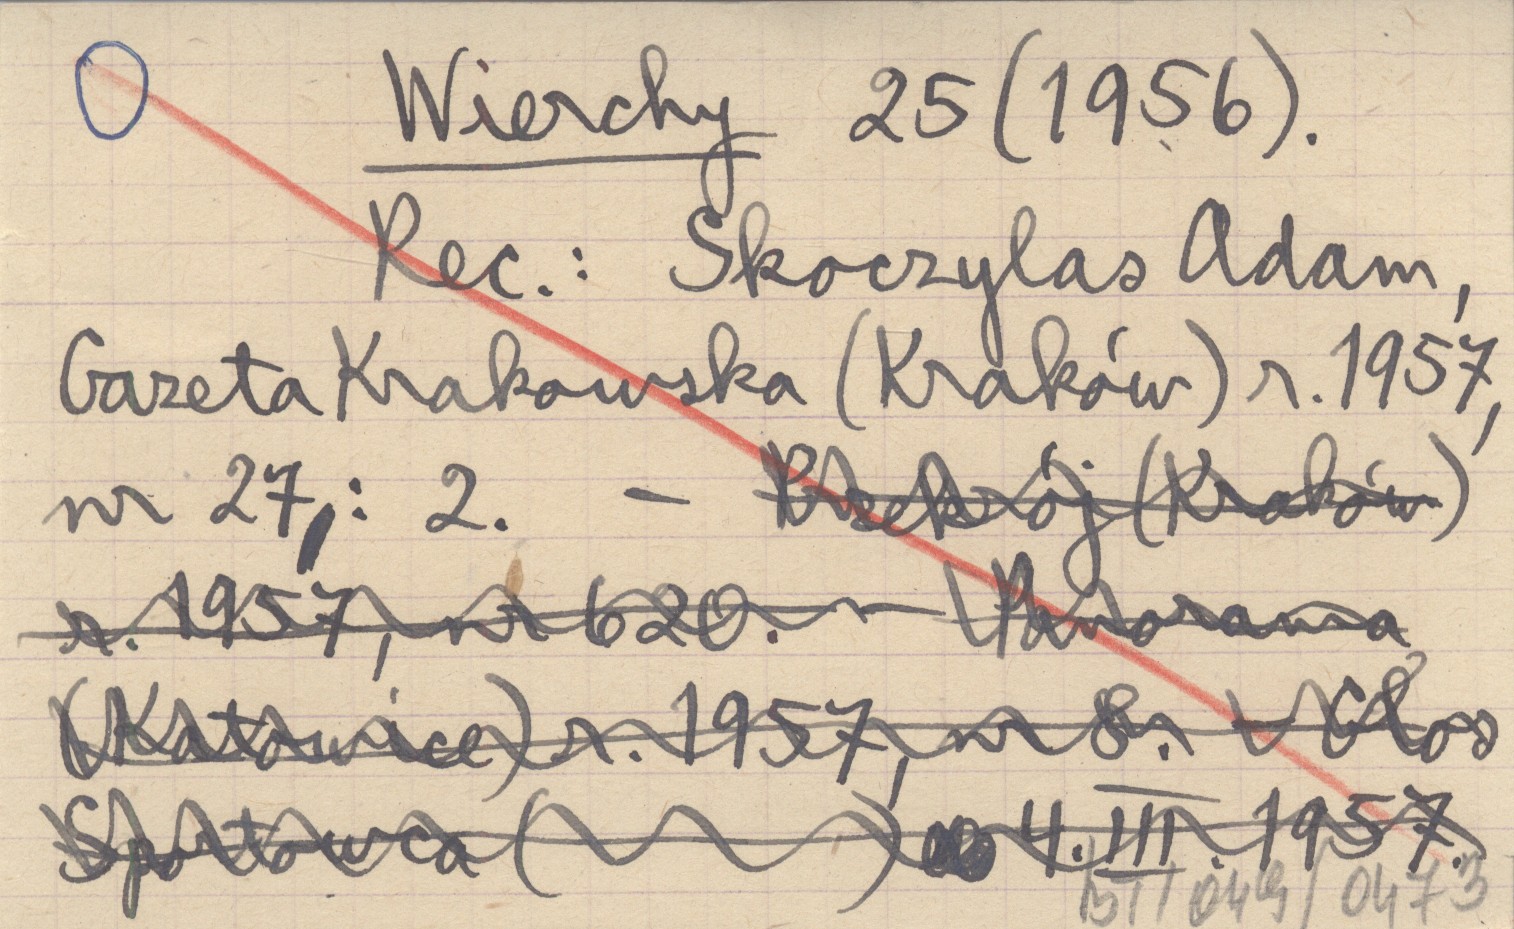 Wierchy 25 (1956).
Rec.: Skoczylas Adam,
Gazeta Krakowska (Kraków) r. 1957,
nr 27,: 2. - Przekrój (Kraków)
r. 1957, nr 620. - Panorama
(Katowice) r. 1957, nr 8. - Głos
Sportowca ( ) 4.III.1957.
BT/049/0473